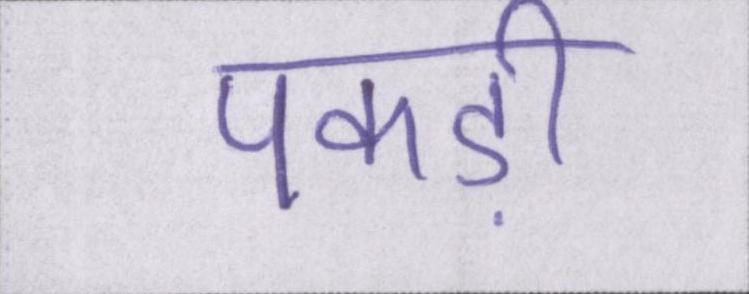 पकड़ी